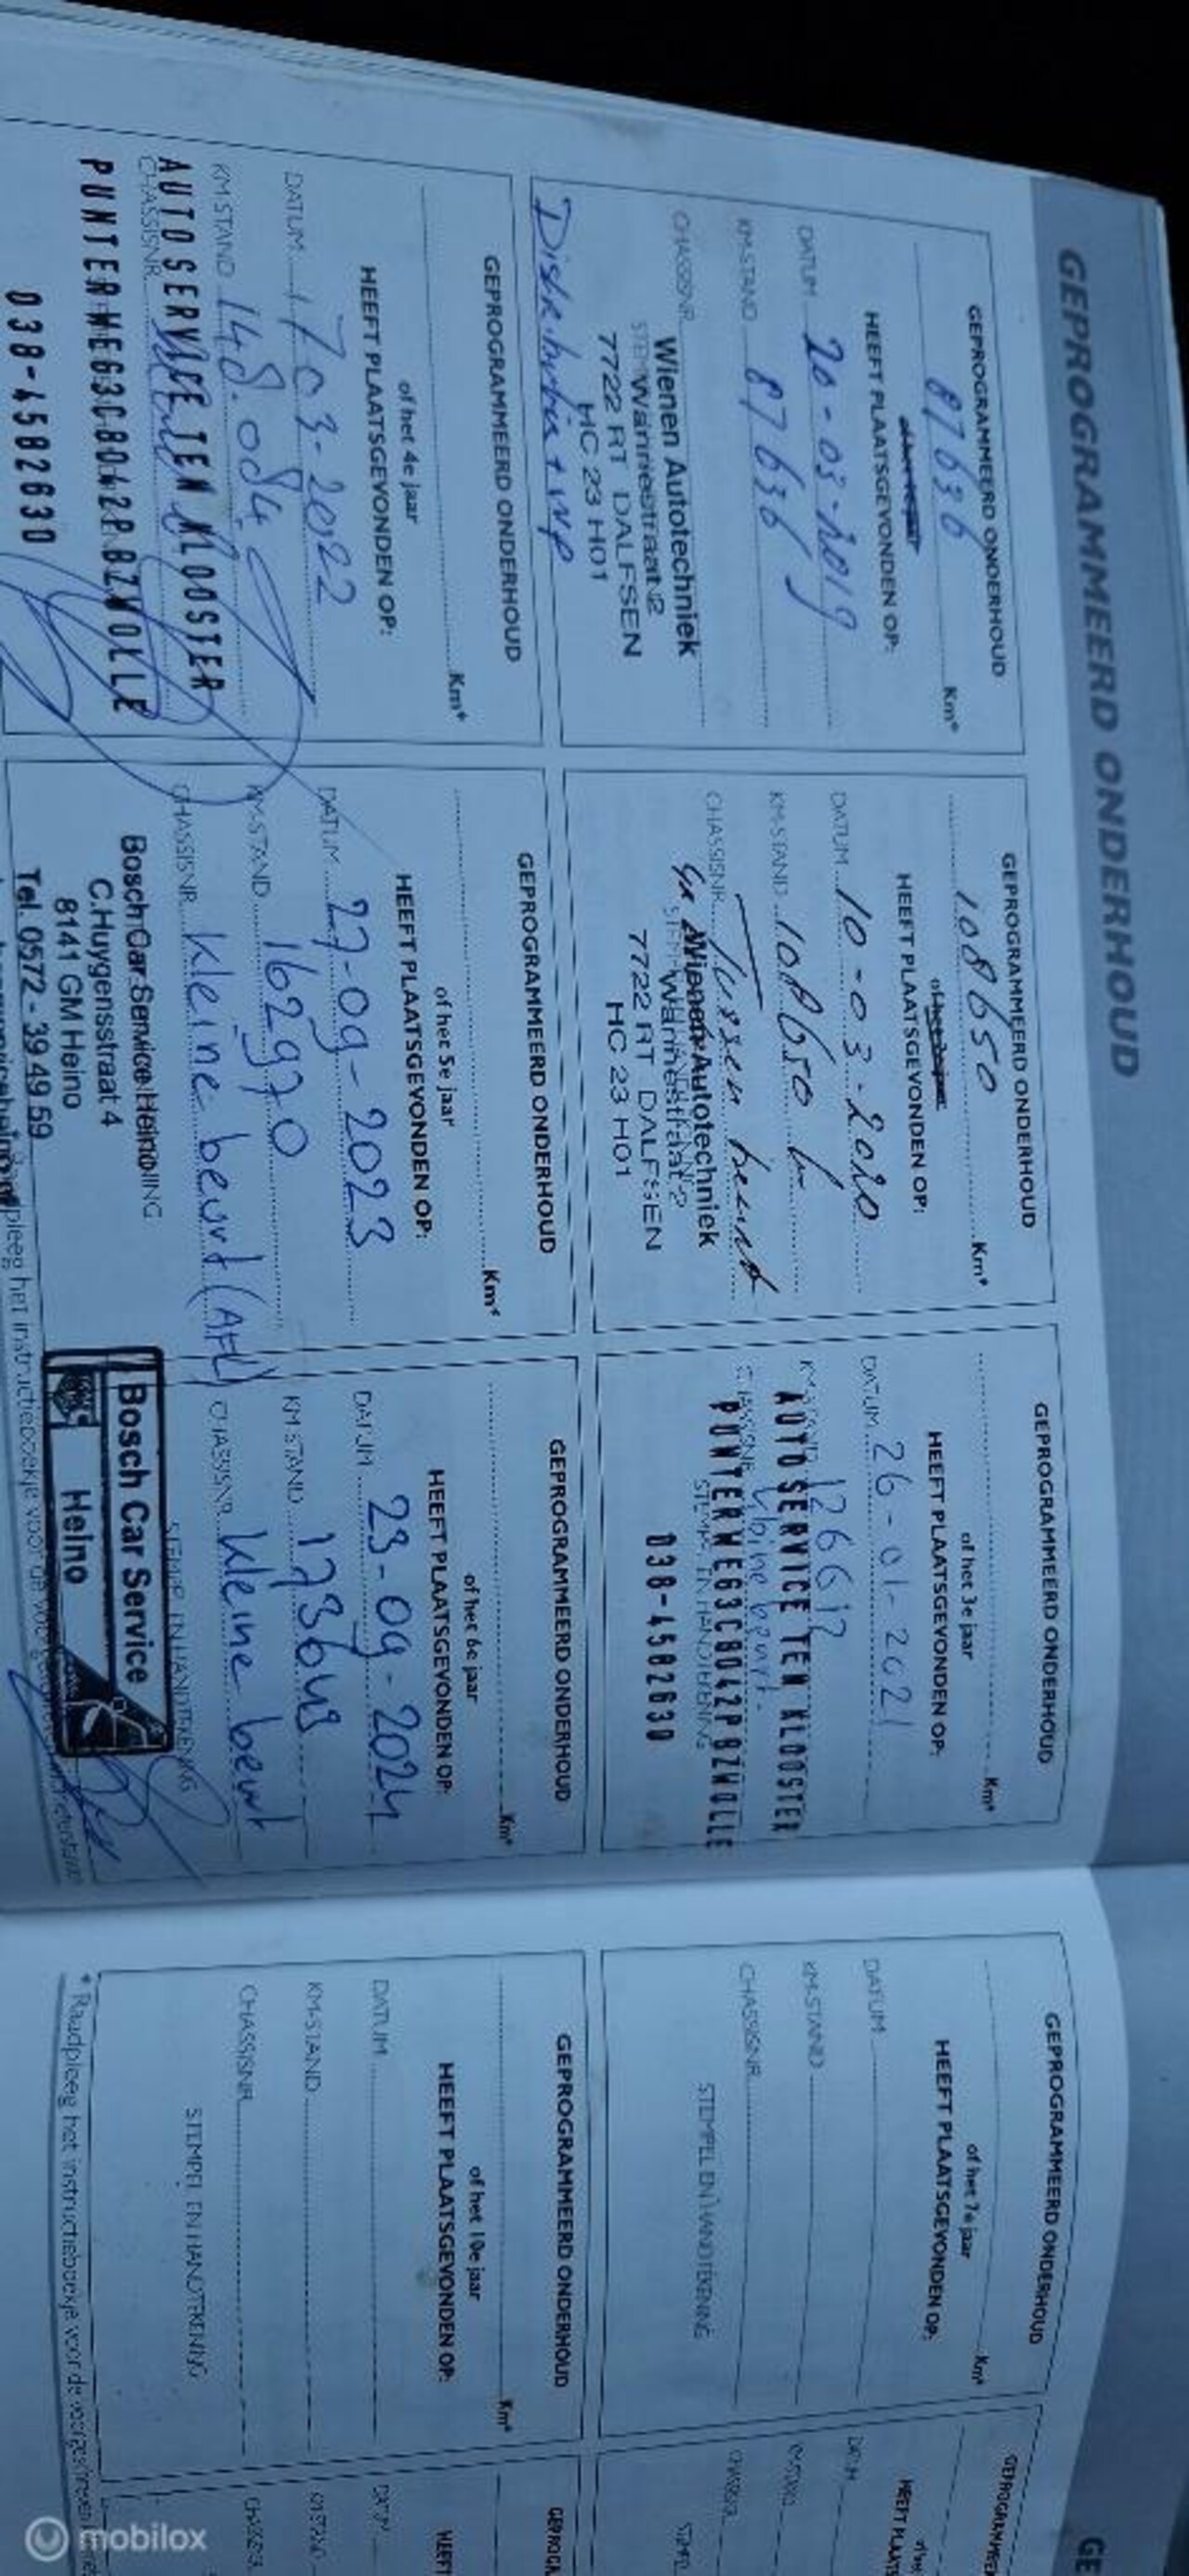 GEPROGRAMMEERD ONDERHOUD
GEPROGRAMMEERD ONDERHOUD
87636 Km*
HEEFT PLAATSGEVONDEN OP:
DATUM 20-03-2019
KM-STAND 87636
CHASSISNR.
Wienen Autotechniek
Wannestraat 2
7722 RT DALFSEN
HC 23 H01
Distributie + WP
GEPROGRAMMEERD ONDERHOUD
108650 Km*
HEEFT PLAATSGEVONDEN OP:
DATUM 10-03-2020
KM-STAND 108650
CHASSISNR. Tussen beurt
Wienen Autotechniek
Wannestraat 2
7722 RT DALFSEN
HC 23 H01
GEPROGRAMMEERD ONDERHOUD
Km*
of het 3e jaar
HEEFT PLAATSGEVONDEN OP:
DATUM 26-01-2021
KM-STAND 126612
AUTOSERVICE TEN KLOOSTER
CHASSISNR. kleine beurt.
PUNTERWEG3C8042PBZWOLLE
STEMPEL EN HANDTEKENING
038-4582630
GEPROGRAMMEERD ONDERHOUD
Km*
of het 4e jaar
HEEFT PLAATSGEVONDEN OP:
DATUM 1703-2022
KM-STAND 148.084
CHASSISNR.
AUTOSERVICE TEN KLOOSTER
PUNTERWEG3C8042PBZWOLLE
038-4582630
GEPROGRAMMEERD ONDERHOUD
Km*
of het 5e jaar
HEEFT PLAATSGEVONDEN OP:
DATUM 27-09-2023
KM-STAND 162970
CHASSISNR. Kleine beurt (AFL)
Bosch Car Service Heino
C.Huygensstraat 4
8141 GM Heino
Tel. 0572 - 39 49 59
GEPROGRAMMEERD ONDERHOUD
Km*
of het 6e jaar
HEEFT PLAATSGEVONDEN OP:
DATUM 23-09-2024
KM-STAND 173648
CHASSISNR. Kleine beurt
STEMPEL EN HANDTEKENING
Bosch Car Service
Heino
pleeg het instructieboekje voor de
GEPROGRAMMEERD ONDERHOUD
Km*
of het 7e jaar
HEEFT PLAATSGEVONDEN OP:
DATUM
KM-STAND
CHASSISNR.
STEMPEL EN HANDTEKENING
GEPROGRAMMEERD ONDERHOUD
Km*
of het 10e jaar
HEEFT PLAATSGEVONDEN OP:
DATUM
KM-STAND
CHASSISNR.
STEMPEL EN HANDTEKENING
* Raadpleeg het instructieboekje voor de voorgeschreven
GE
GEPROGRAMMEER
HEEFT PLAATS
DATUM
KM-STAND
CHASSISNR.
STEMPEL
GEPROGRA
HEEFT
DATUM
KM-STAND
CHASSISNR.
mobilox